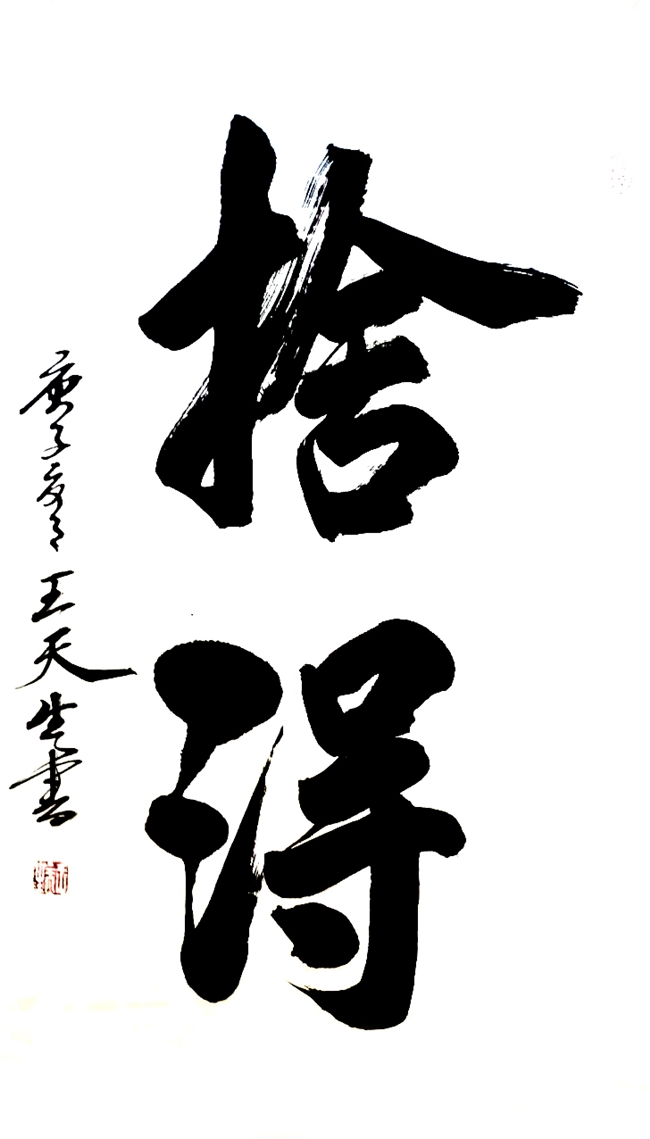 捨得
庚子夏月王天生書